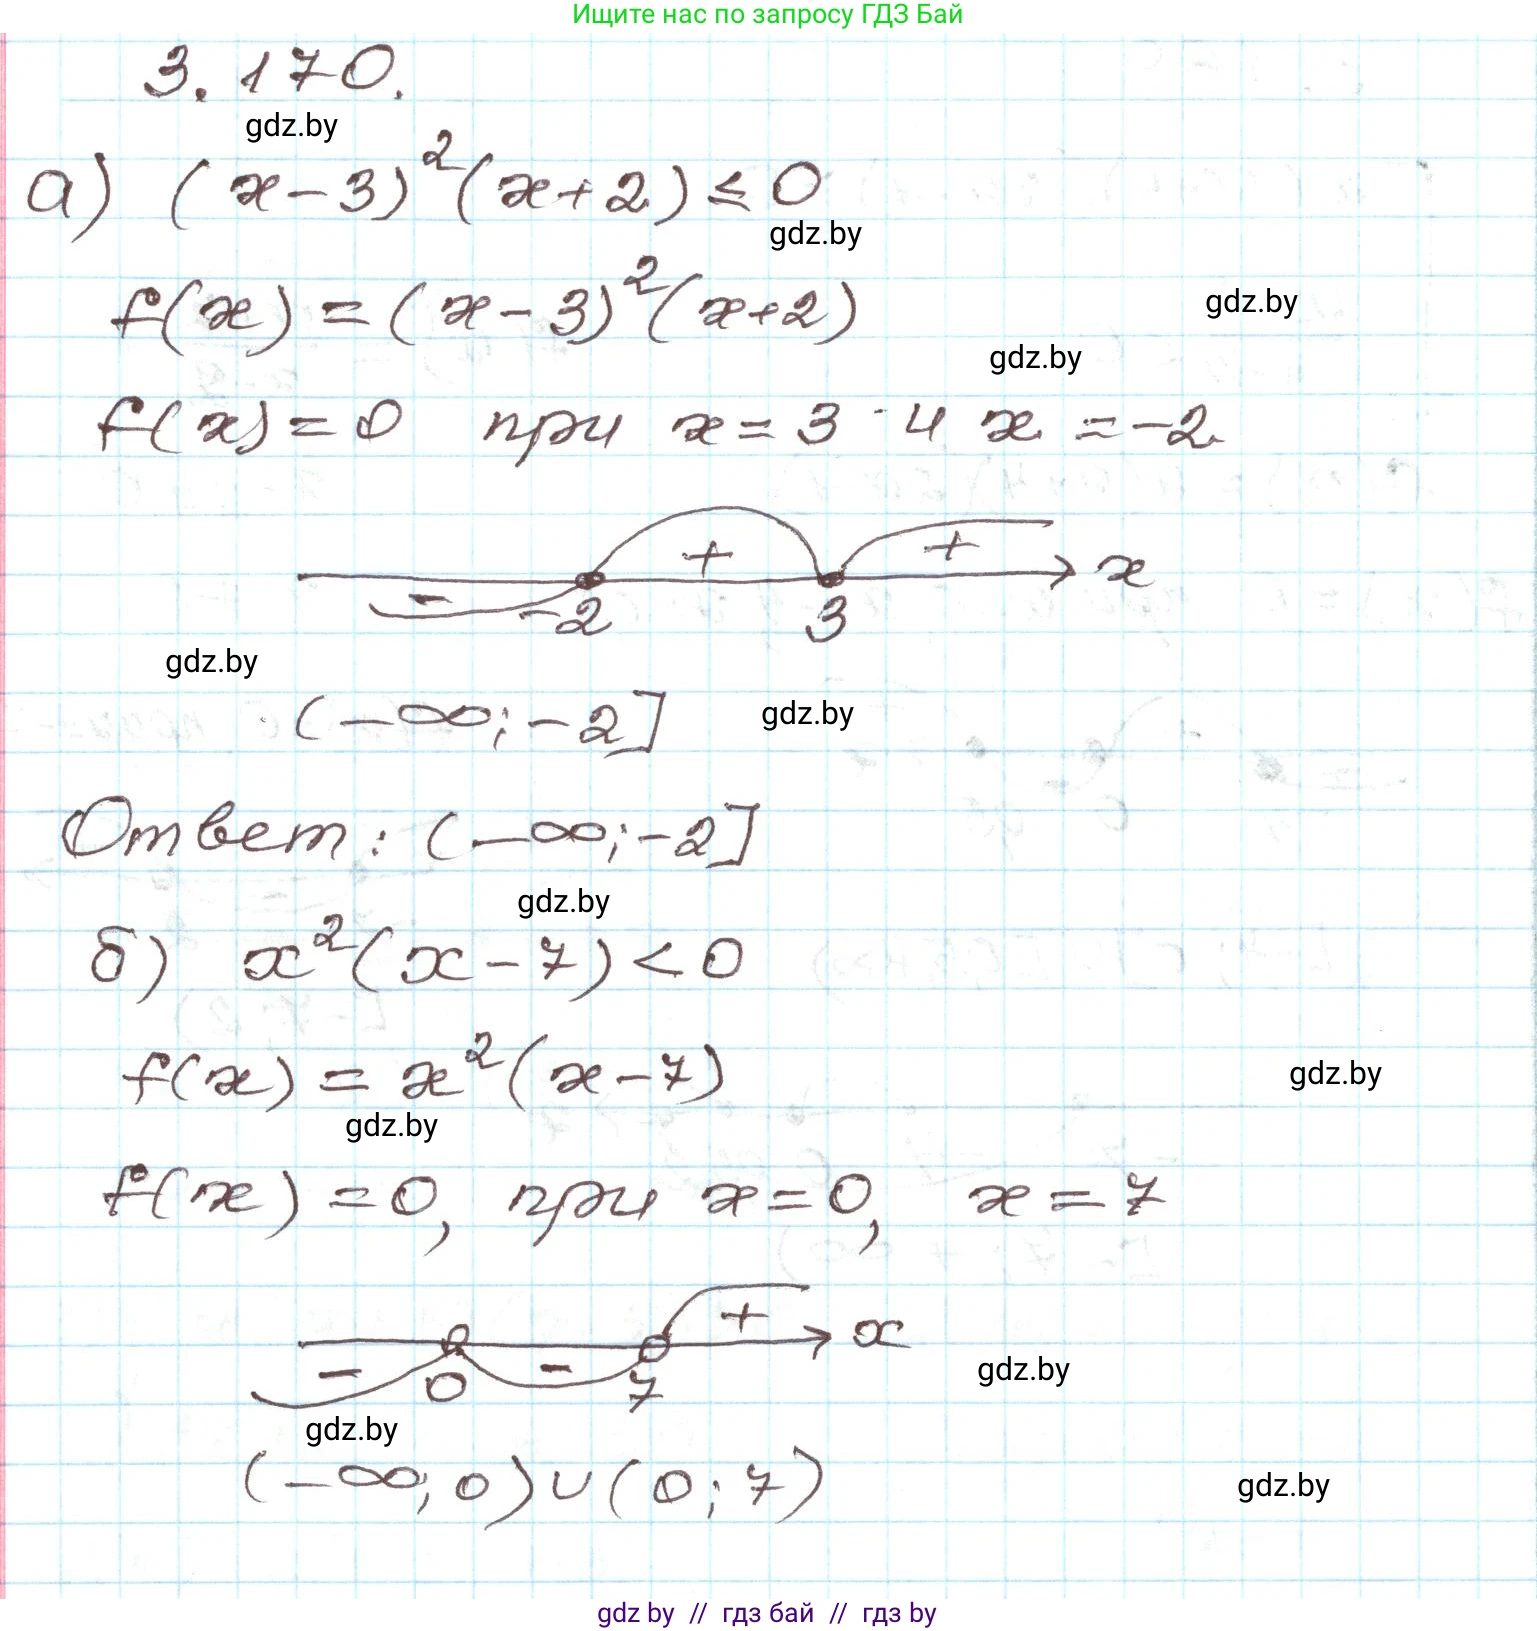 Ищите нас по запросу ГДЗ Бай
3.170.
gdz.by
а) (x-3)²(x+2) ≤ 0
gdz.by
f(x) = (x-3)²(x+2)
gdz.by
gdz.by
f(x) = 0 при x = 3 и x = -2
+ + x
- -2 3
gdz.by
(-∞; -2]
gdz.by
Ответ: (-∞; -2]
gdz.by
б) x²(x-7) < 0
f(x) = x²(x-7)
gdz.by
gdz.by
f(x) = 0, при x = 0, x = 7
+ x
- 0 - 7
gdz.by
gdz.by
(-∞; 0) ∪ (0; 7)
gdz.by
gdz by // гдз бай // гдз by